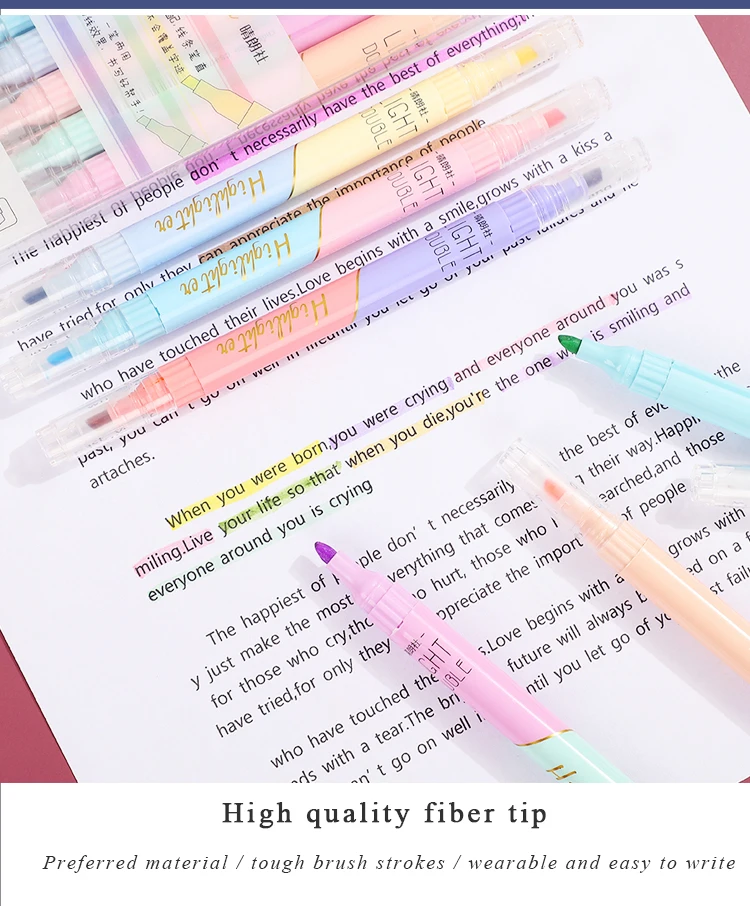 晴朗社
don't necessarily have the best of everything;th
The happiest of people
LIGHT
DOUBLE
晴朗社
Highlighter
can appreciate the importance of people
have tried,for only they
LIGHT
DOUBLE
Highlighter
who have touched their lives.Love begins with a smile,grows with a kiss a
晴朗社
LIGHT
OUBLE
Highlighter
past, you can't go on well in lifeuntil you let go of your past failures and he
artaches.
When you were born,you were crying and everyone around you was s
miling.Live your life so that when you die,you're the one w is smiling and
everyone around you is crying
The happiest of people don't necessarily the best of
y just make the most everything that comes their way.Happi
for those who cry,tho o hurt, those who earched,and those
have tried,for only they ppreciate the impor of people
who have touched the s.Love begins with a grows with
ds with a tear.The bri future will always ed on a f
n't go on well i ntil you let go of st fail
GHT
High quality fiber tip
Preferred material / tough brush strokes / wearable and easy to write